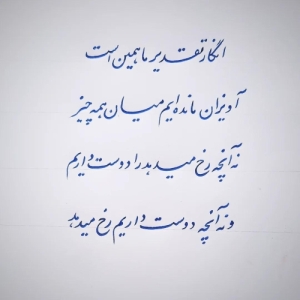 انگار تقدیر ما همین است
آویزان مانده‌ایم میان همه چیز
نه آنچه رخ میدهد را دوست داریم
و نه آنچه دوست داریم رخ میدهد